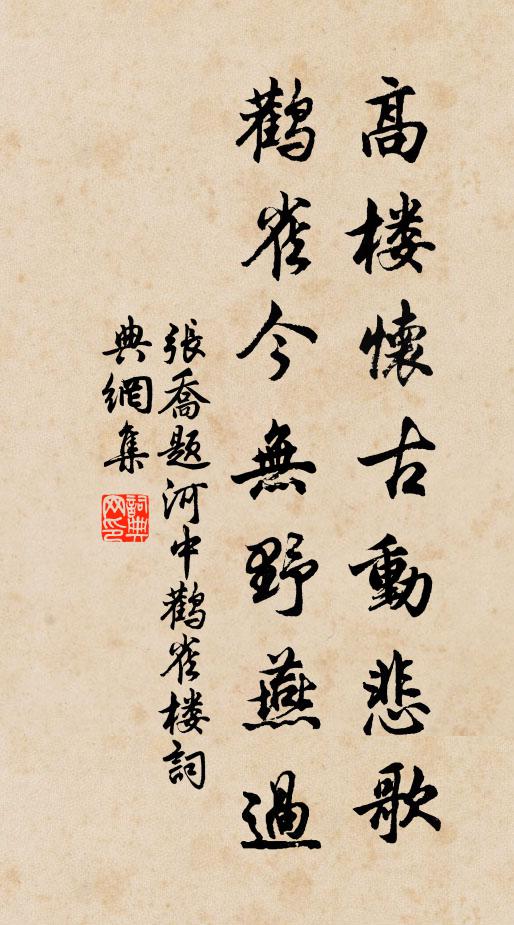 高楼懷古動悲歌
鹳雀今無野燕過
張喬題河中鹳雀楼詞
典網集
詞典
网印